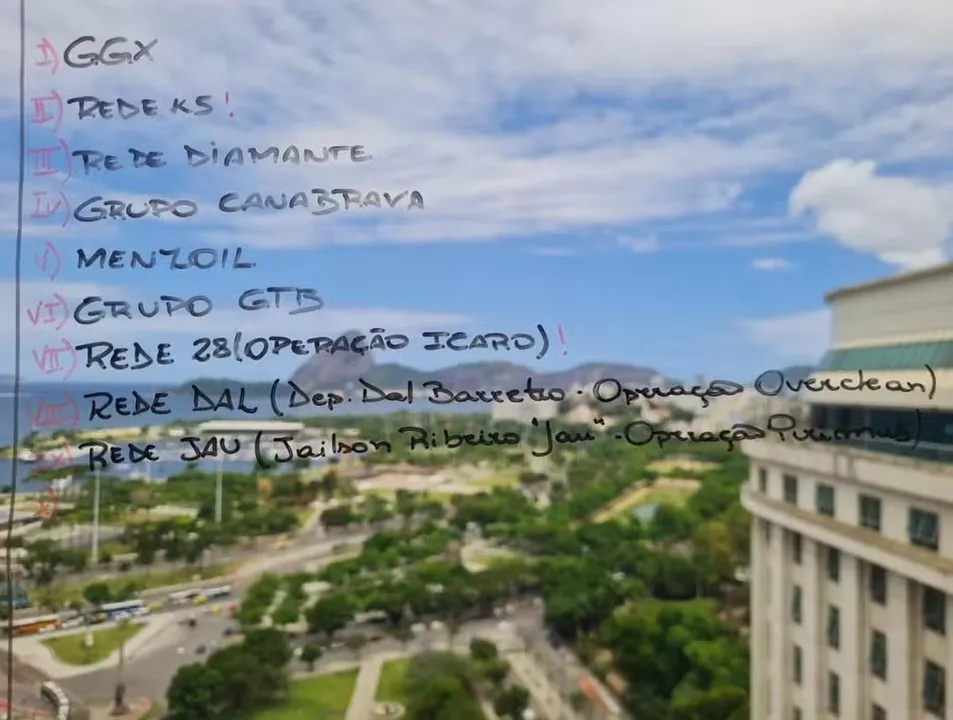 I) GGX
II) REDE K5!
III) REDE DIAMANTE
IV) GRUPO CANABRAVA
V) MENZOIL
VI) GRUPO GTB
VII) REDE 28 (OPERAÇÃO ICARO)!
VIII) REDE DAL (Dep. Dal Barretto - Operação Overclean)
IX) REDE JAU (Jailson Ribeiro "Jau" - Operação
X)